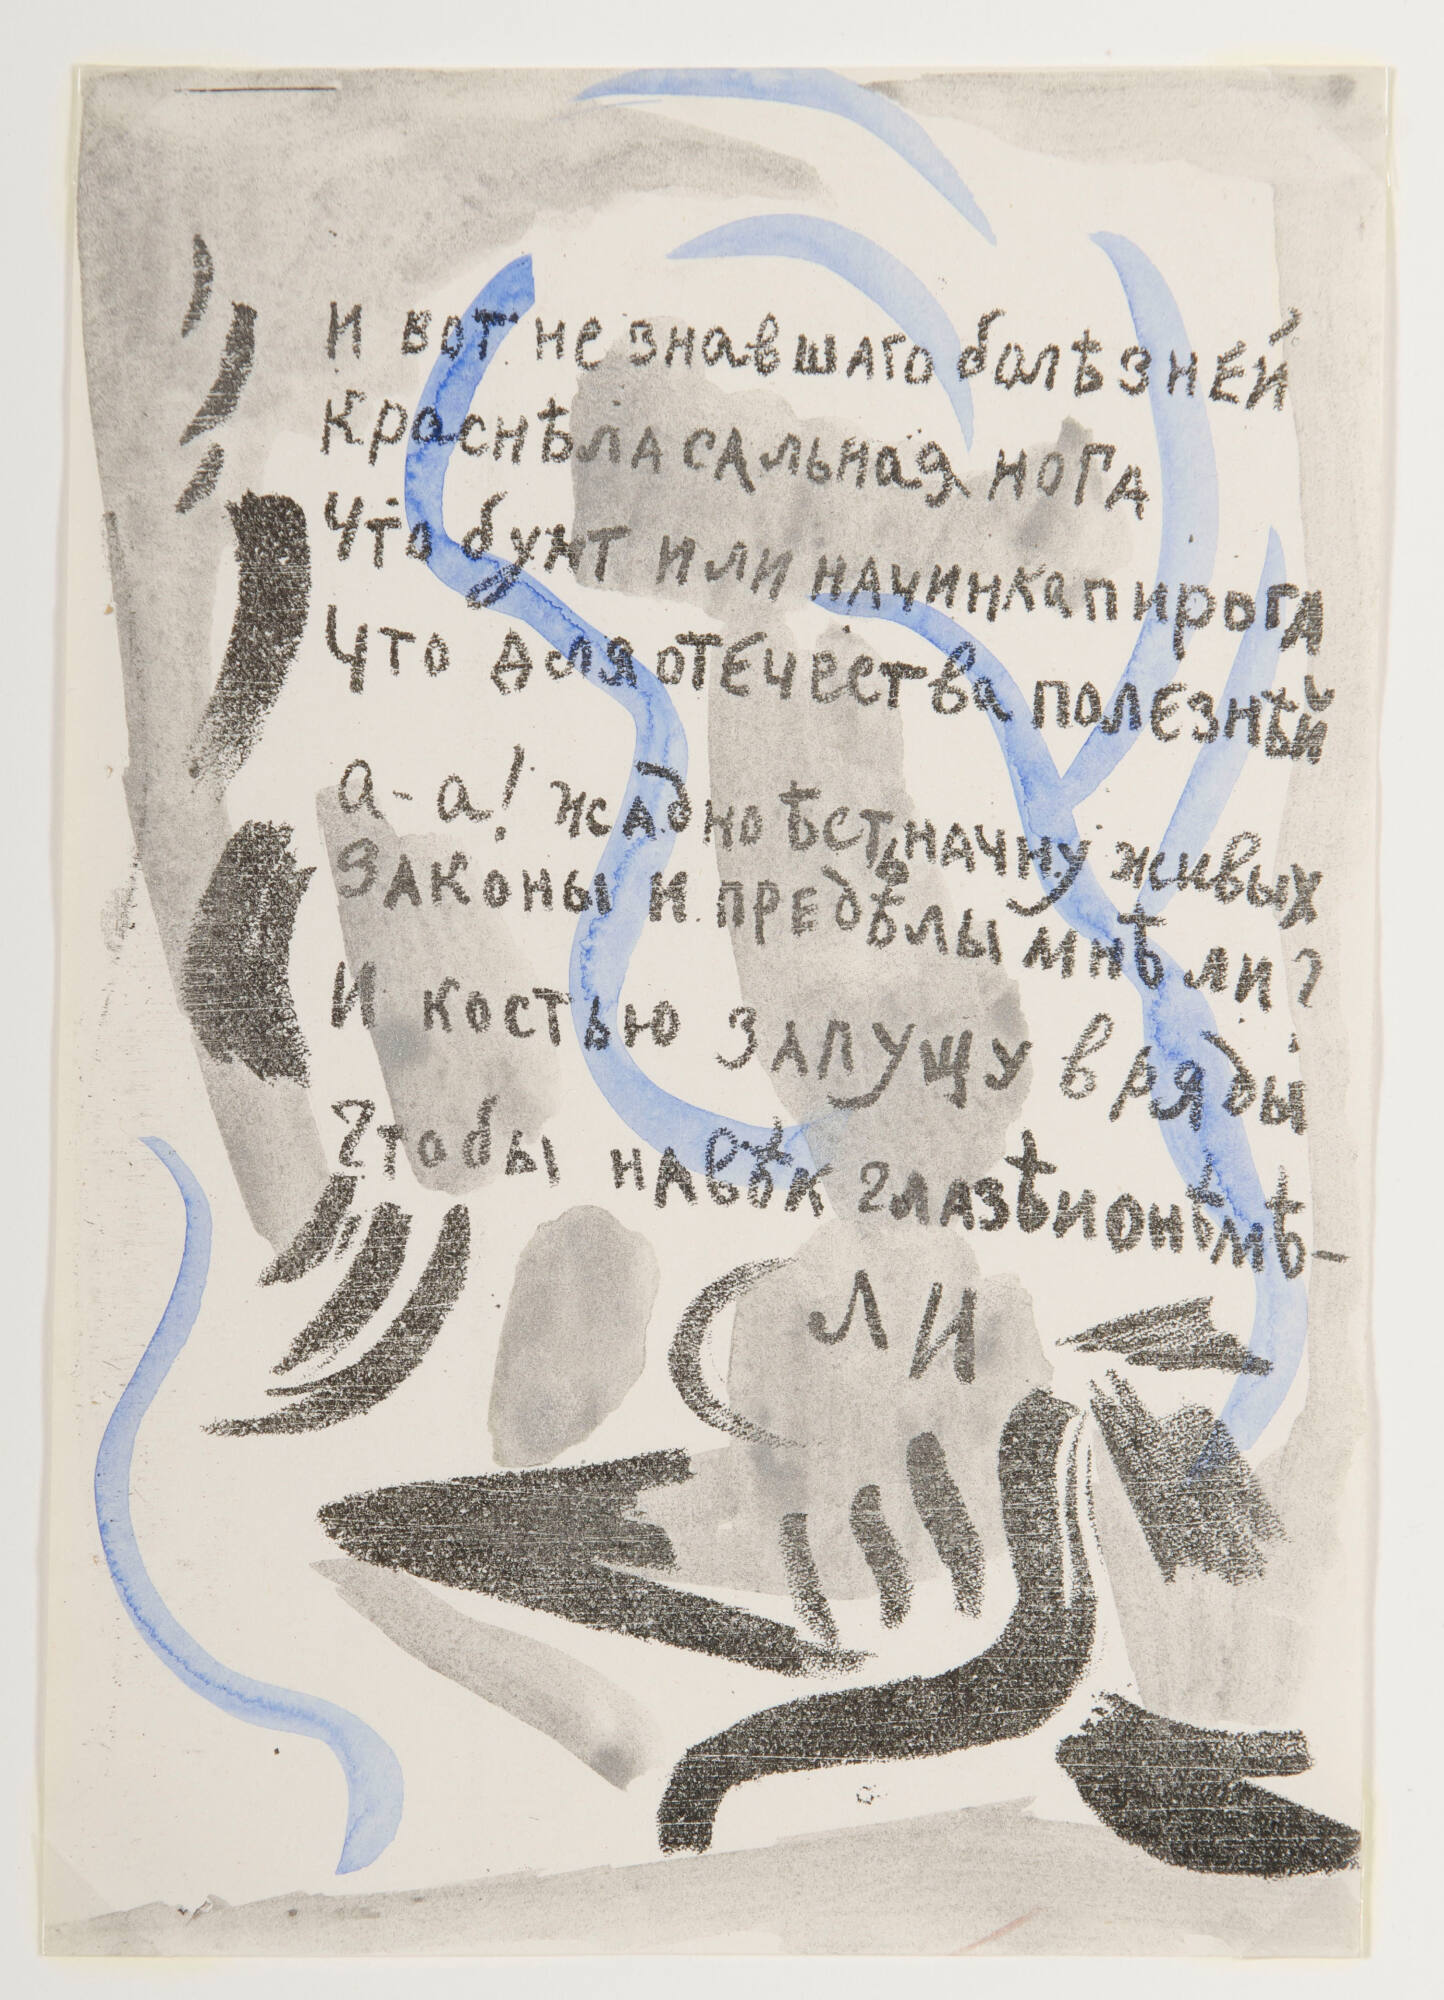 И вот не знавшаго болѣзней
Краснѣла сальная нога
Что бунт или начинка пирога
Что для отечества полезнѣй
а-а! жадно ѣсть начну живых
Законы и предѣлы мнѣ ли?
И костью запущу в ряды
Чтобы навѣк глазѣи онѣмѣ-
ли